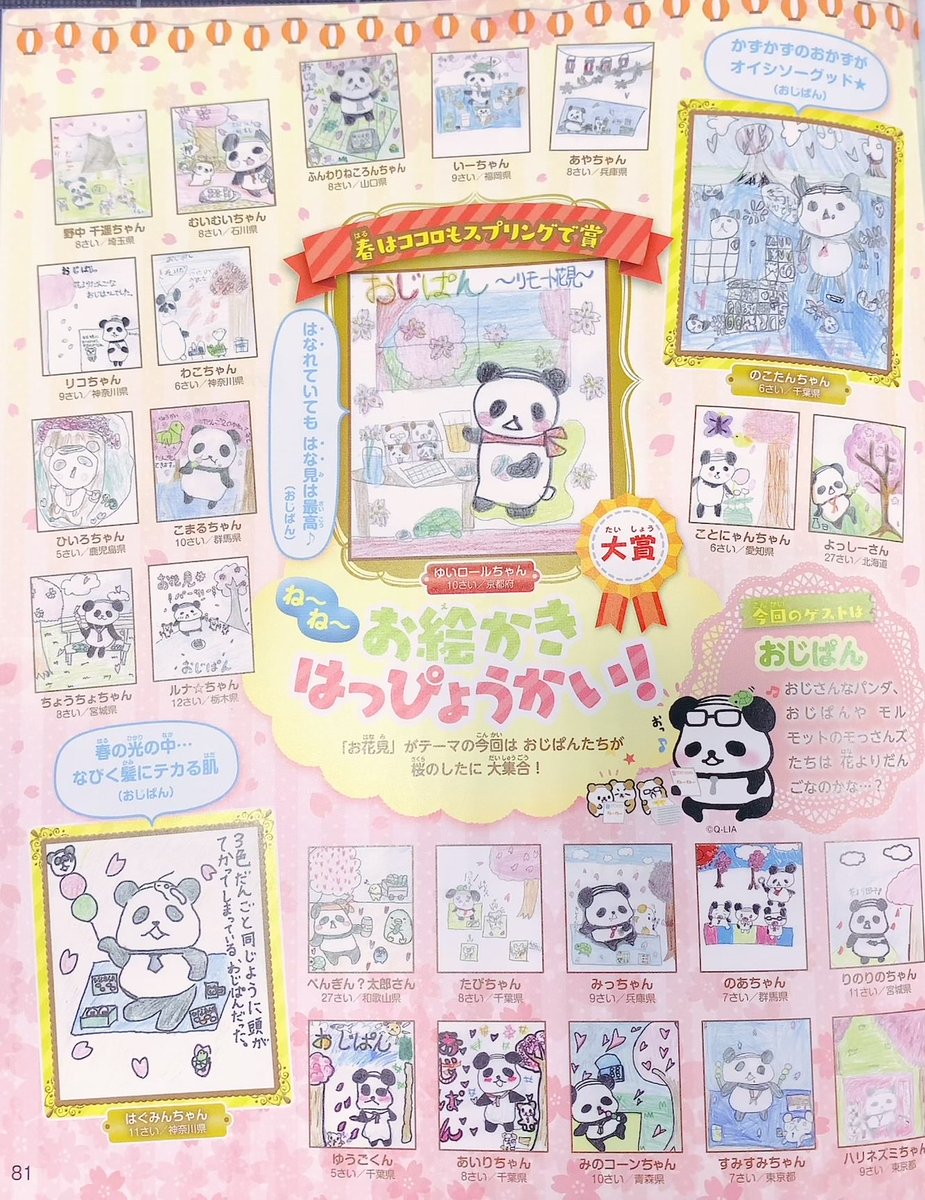 かずかずのおかずが
オイシソーグッド★
(おじぱん)
野中 千遥ちゃん
8さい/埼玉県
むいむいちゃん
8さい/石川県
ふんわりねころんちゃん
8さい/山口県
いーちゃん
9さい/福岡県
あやちゃん
8さい/兵庫県
のこたんちゃん
6さい/千葉県
春はココロもスプリングで賞
おじぱん 〜リモート花見〜
はなれていても はな見は最高♪
(おじぱん)
大賞
ゆいロールちゃん
10さい/京都府
リコちゃん
9さい/神奈川県
わこちゃん
6さい/神奈川県
ひいろちゃん
5さい/鹿児島県
こまるちゃん
10さい/群馬県
ことにゃんちゃん
6さい/愛知県
よっしーさん
27さい/北海道
ちょうちょちゃん
8さい/宮城県
お花見
パーティー
おじぱん
ルナ☆ちゃん
12さい/栃木県
ね〜ね〜
お絵かき
はっぴょうかい!
「お花見」がテーマの今回は おじぱんたちが
桜のしたに 大集合!
今回のゲストは
おじぱん
おじさんなパンダ、
おじぱんや モル
モットのモっさんズ
たちは 花よりだん
ごなのかな…?
おっ♪
©Q-LIA
春の光の中…
なびく髪にテカる肌
(おじぱん)
3色だんごと同じように頭が
てかってしまっている、わじぱんだった。
はぐみんちゃん
11さい/神奈川県
ぺんぎん?太郎さん
27さい/和歌山県
たぴちゃん
8さい/千葉県
みっちゃん
9さい/兵庫県
のあちゃん
7さい/群馬県
りのりのちゃん
11さい/宮城県
おじぱん
ゆうごくん
5さい/千葉県
あいりちゃん
8さい/千葉県
みのコーンちゃん
10さい/青森県
すみすみちゃん
7さい/東京都
ハリネズミちゃん
9さい 東京都
81